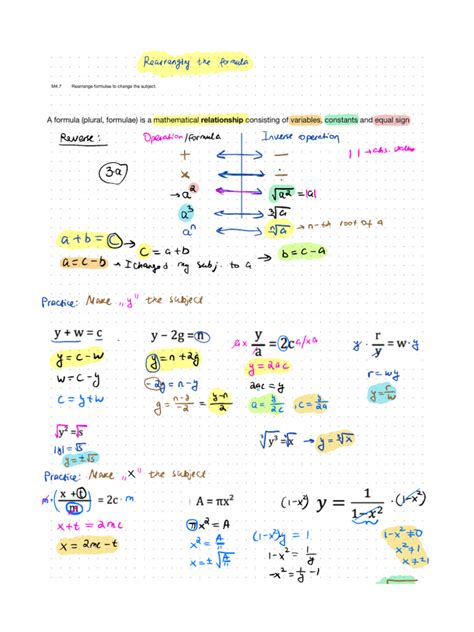 Rearranging the formula
M4.7 Rearrange formulae to change the subject.
A formula (plural, formulae) is a mathematical relationship consisting of variables, constants and equal sign
Reverse: Operation/formula Inverse operation
3a
+ ⟷ −
× ⟷ ÷
| | → abs. value
→ a² ⟷ √a² = |a|
a³ ⟷ ∛a
aⁿ ⟷ ⁿ√a → n-th root of a
a + b = c → c = a + b → b = c − a
a = c − b → I changed my subj. to a
Practice: Make "y" the subject
y + w = c
y = c − w
w = c − y
c = y + w
y − 2g = n
y = n + 2g
−2g = n − y
g = n−y/−2 = y−n/2
a × y/a = 2c a/×a
y = 2ac
2ac = y
a = y/2c , c = y/2a
y · r/y = w · y
r = wy
y = r/w
√y² = √s
|y| = √s
y = ±√s
∛y³ = ∛x → y = ∛x
Practice: Make "x" the subject
m · (x + t / m) = 2c · m
x + t = 2mc
x = 2mc − t
A = πx²
πx² = A
x² = A/π
x = ±√A/π
(1−x²) y = 1/1−x² · (1−x²)
(1−x²)y = 1
1−x² = 1/y
−x² = 1/y − 1
1−x² ≠ 0
x² ≠ 1
x ≠ ±1